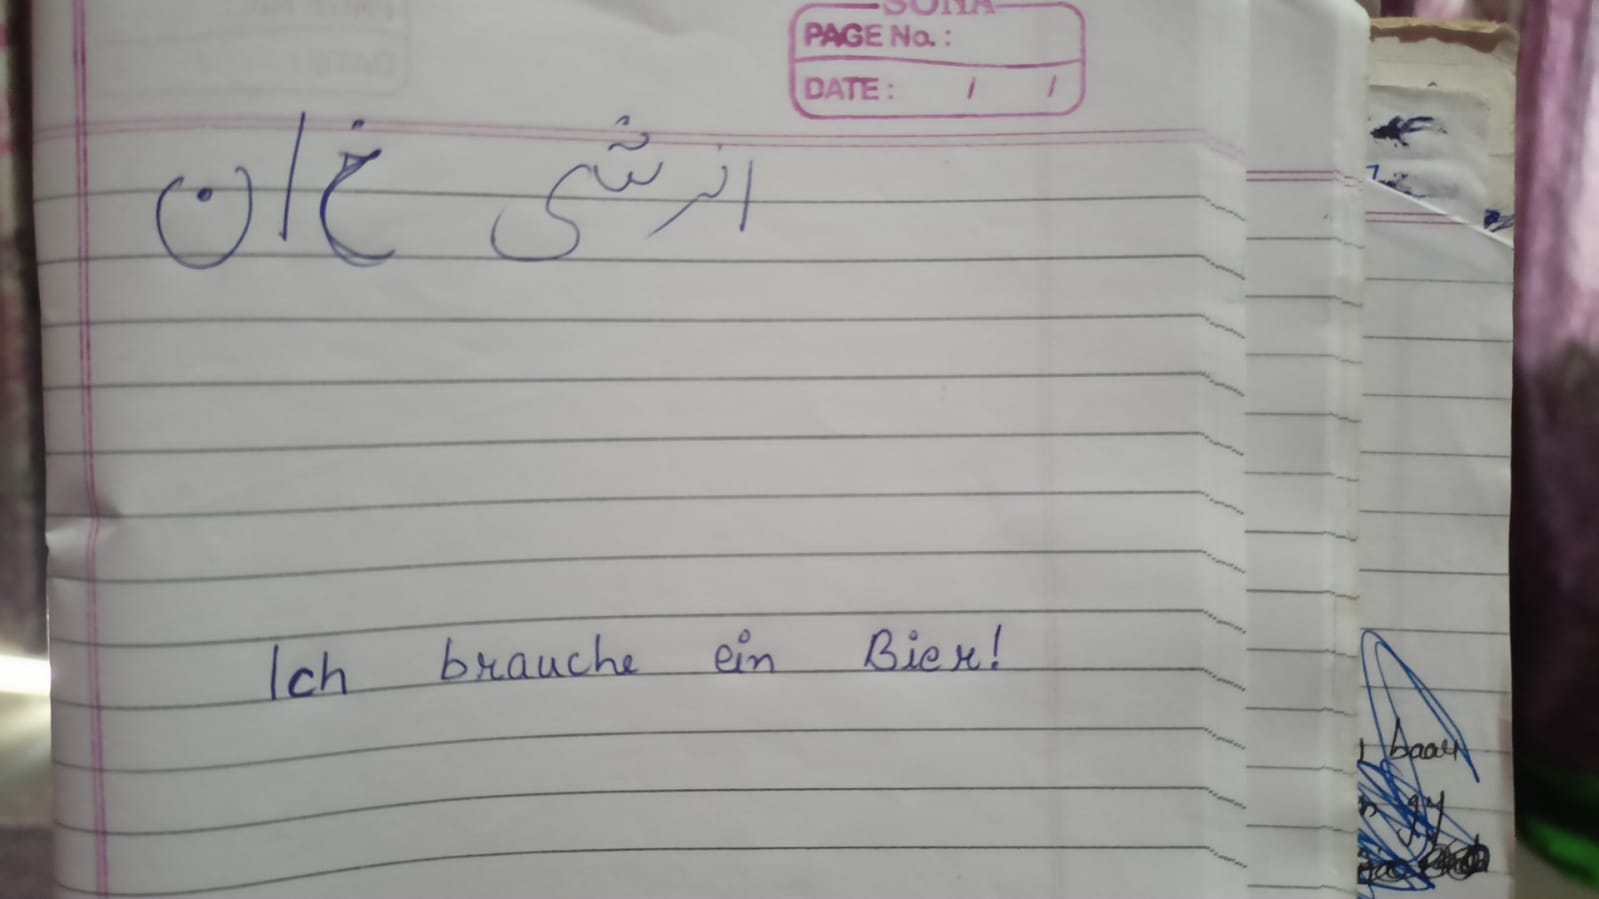 SONA
PAGE No.:
DATE: / /
انرشی خان
Ich brauche ein Bier!
baar
yy